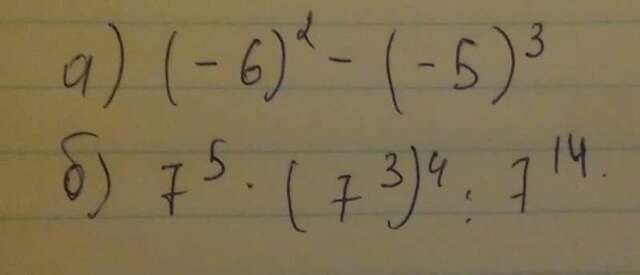 а) (-6)² - (-5)³
б) 7⁵ · (7³)⁴ : 7¹⁴.